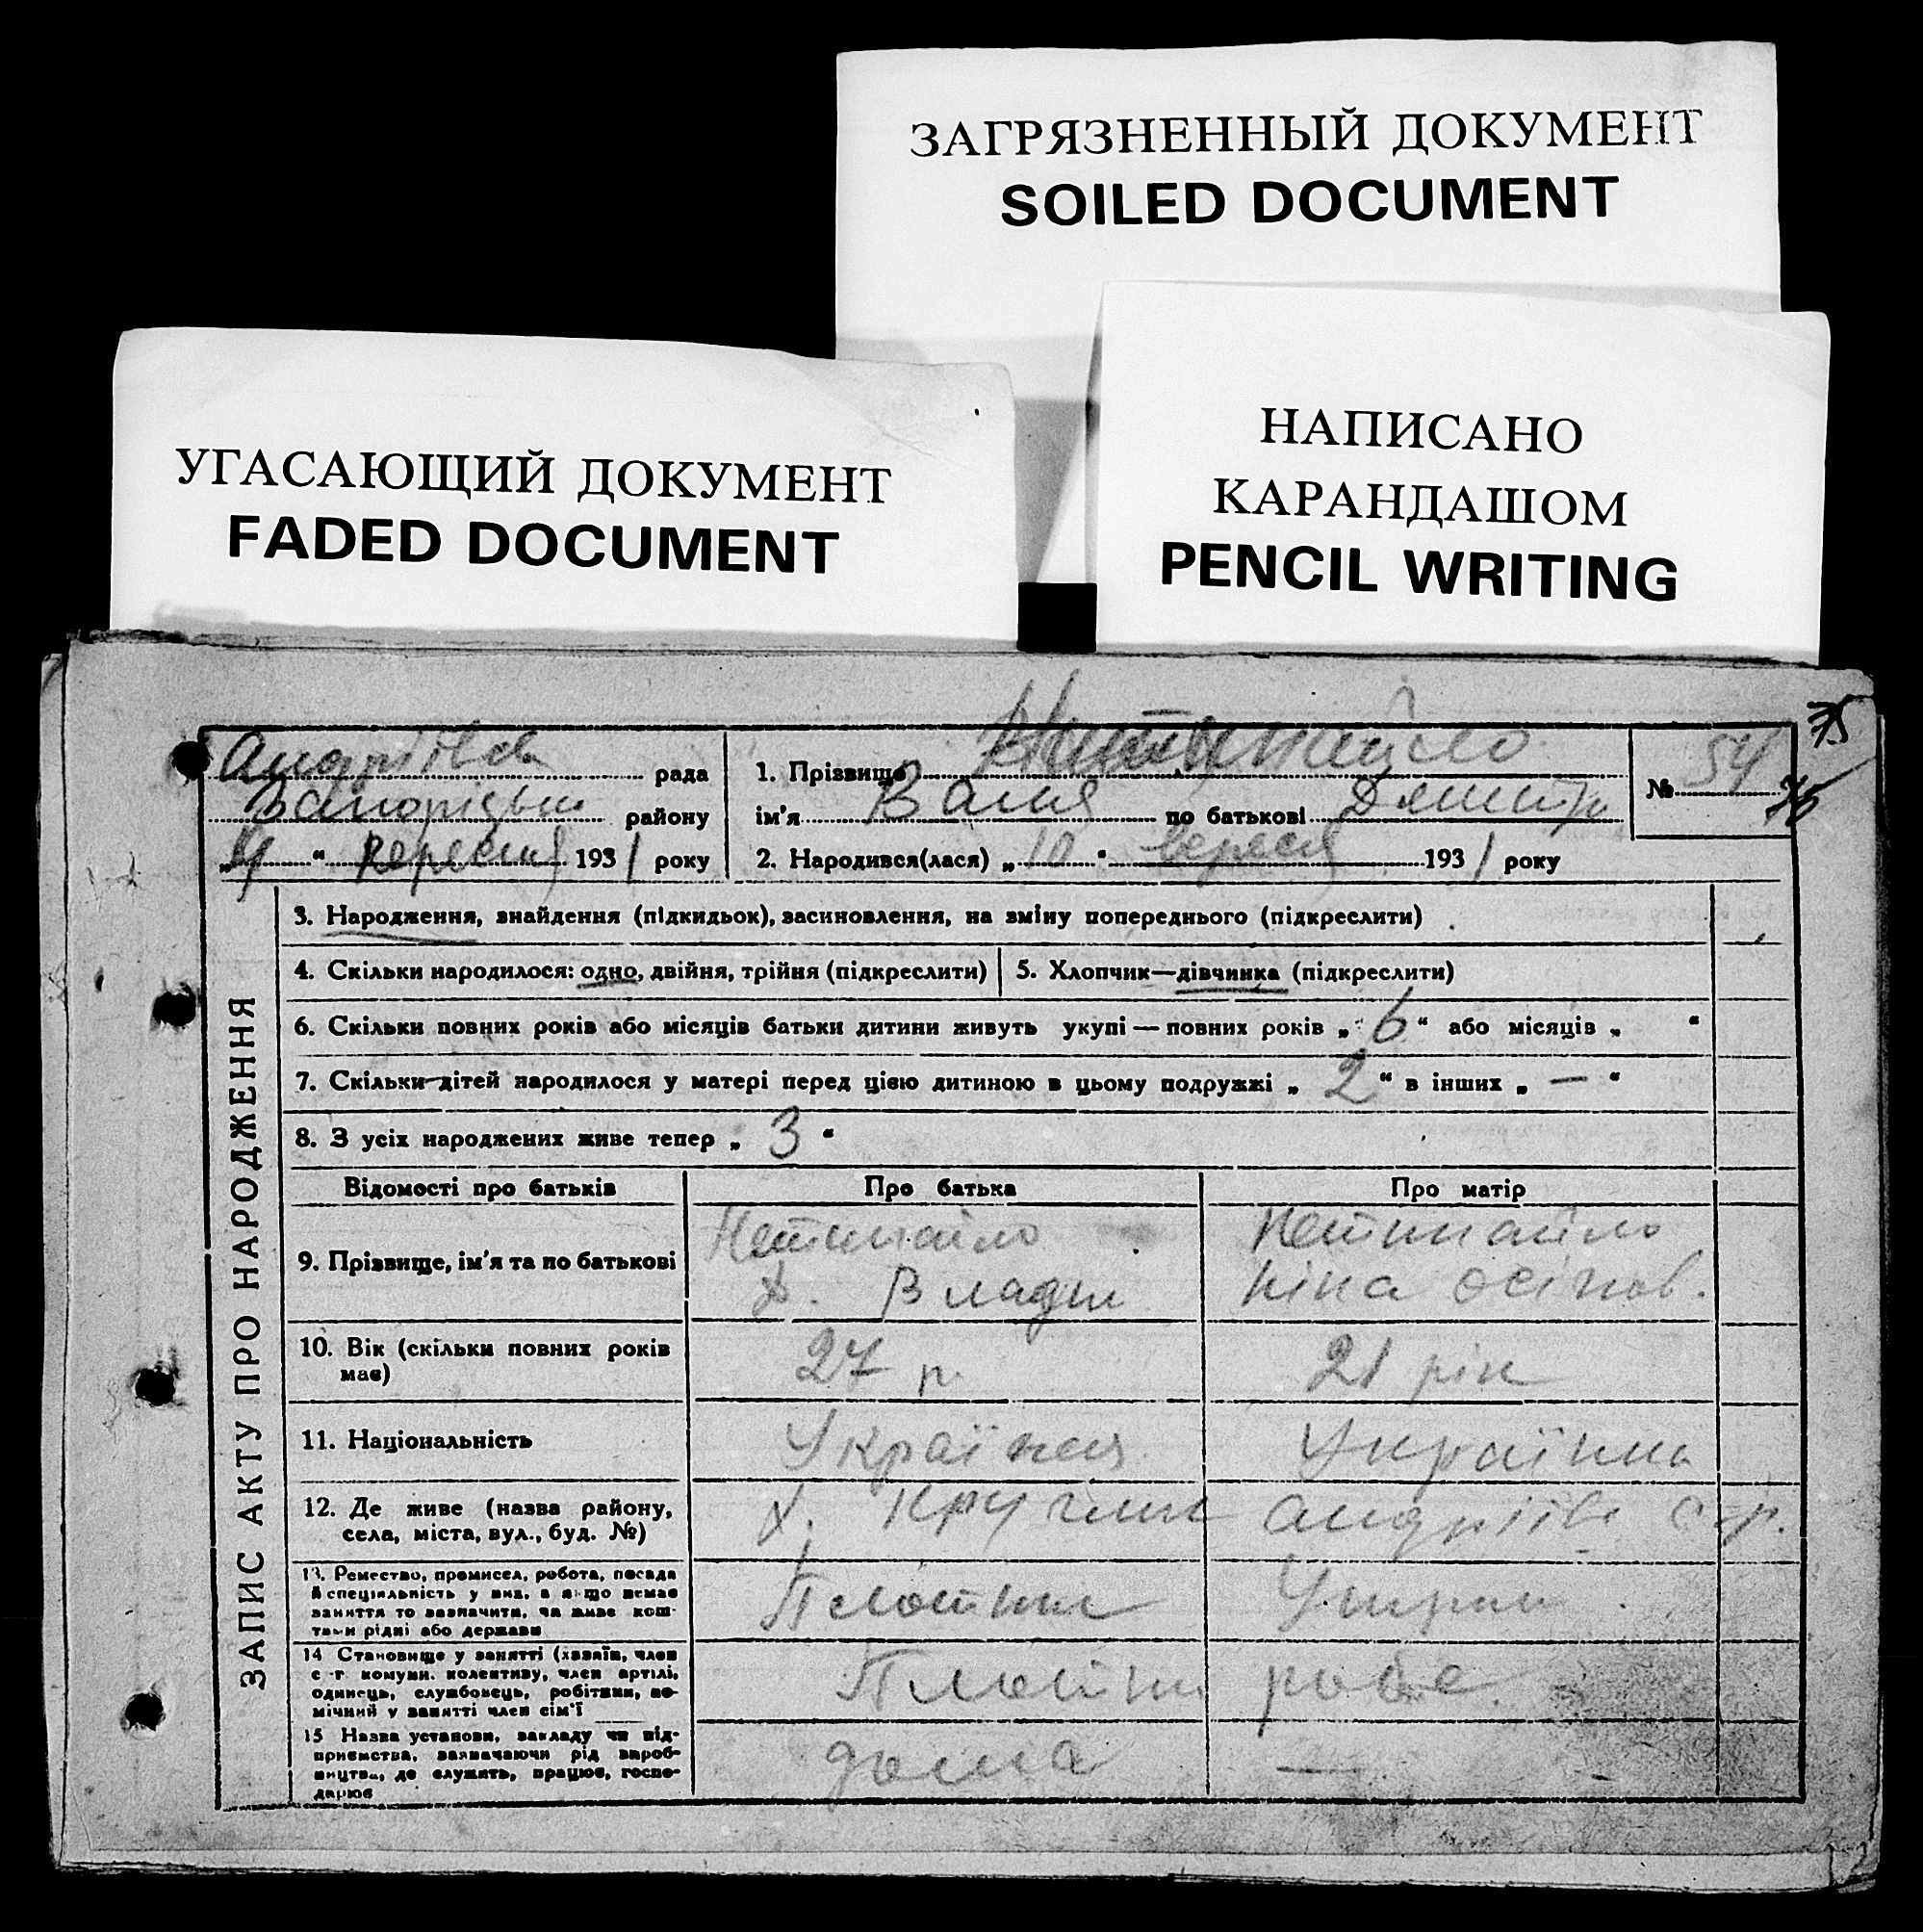 ЗАГРЯЗНЕННЫЙ ДОКУМЕНТ
SOILED DOCUMENT
УГАСАЮЩИЙ ДОКУМЕНТ
FADED DOCUMENT
НАПИСАНО
КАРАНДАШОМ
PENCIL WRITING
75
рада
району
193 1 року
1. Прізвище
ім'я Валя по батькові Дмитр
2. Народився(лася) „ 10 “ вереся 193 1 року
№ 54
ЗАПИС АКТУ ПРО НАРОДЖЕННЯ
3. Народження, знайдення (підкидьок), засиновлення, на зміну попереднього (підкреслити)
4. Скільки народилося: одно, двійня, трійня (підкреслити)
5. Хлопчик—дівчинка (підкреслити)
6. Скільки повних років або місяців батьки дитини живуть укупі — повних років „ 6 “ або місяців „ “
7. Скільки дітей народилося у матері перед цією дитиною в цьому подружжі „ 2 “ в інших „ — “
8. З усіх народжених живе тепер „ 3 “
Відомості про батьків
Про батька
Про матір
9. Прізвище, ім'я та по батькові
Нетинайло
Д. Влади
Нетинайло
Ніна Осіпов.
10. Вік (скільки повних років
має)
27 р.
21 рік
11. Національність
Українка
12. Де живе (назва району,
села, міста, вул., буд. №)
х.
13. Ремество, промисел, робота, посада
й спеціяльність у них, а якщо немає
заняття то зазначити, чи живе кош-
тами рідні або держави
14 Становище у занятті (хазяїн, член
с.-г комуни. колективу, член артілі,
одинець, службовець, робітник, по-
мічний у занятті член сім'ї
15 Назва установи, закладу чи під-
приємства, зазначаючи рід вироб-
ництва, де служить, працює, госпо-
дарює
дома
—